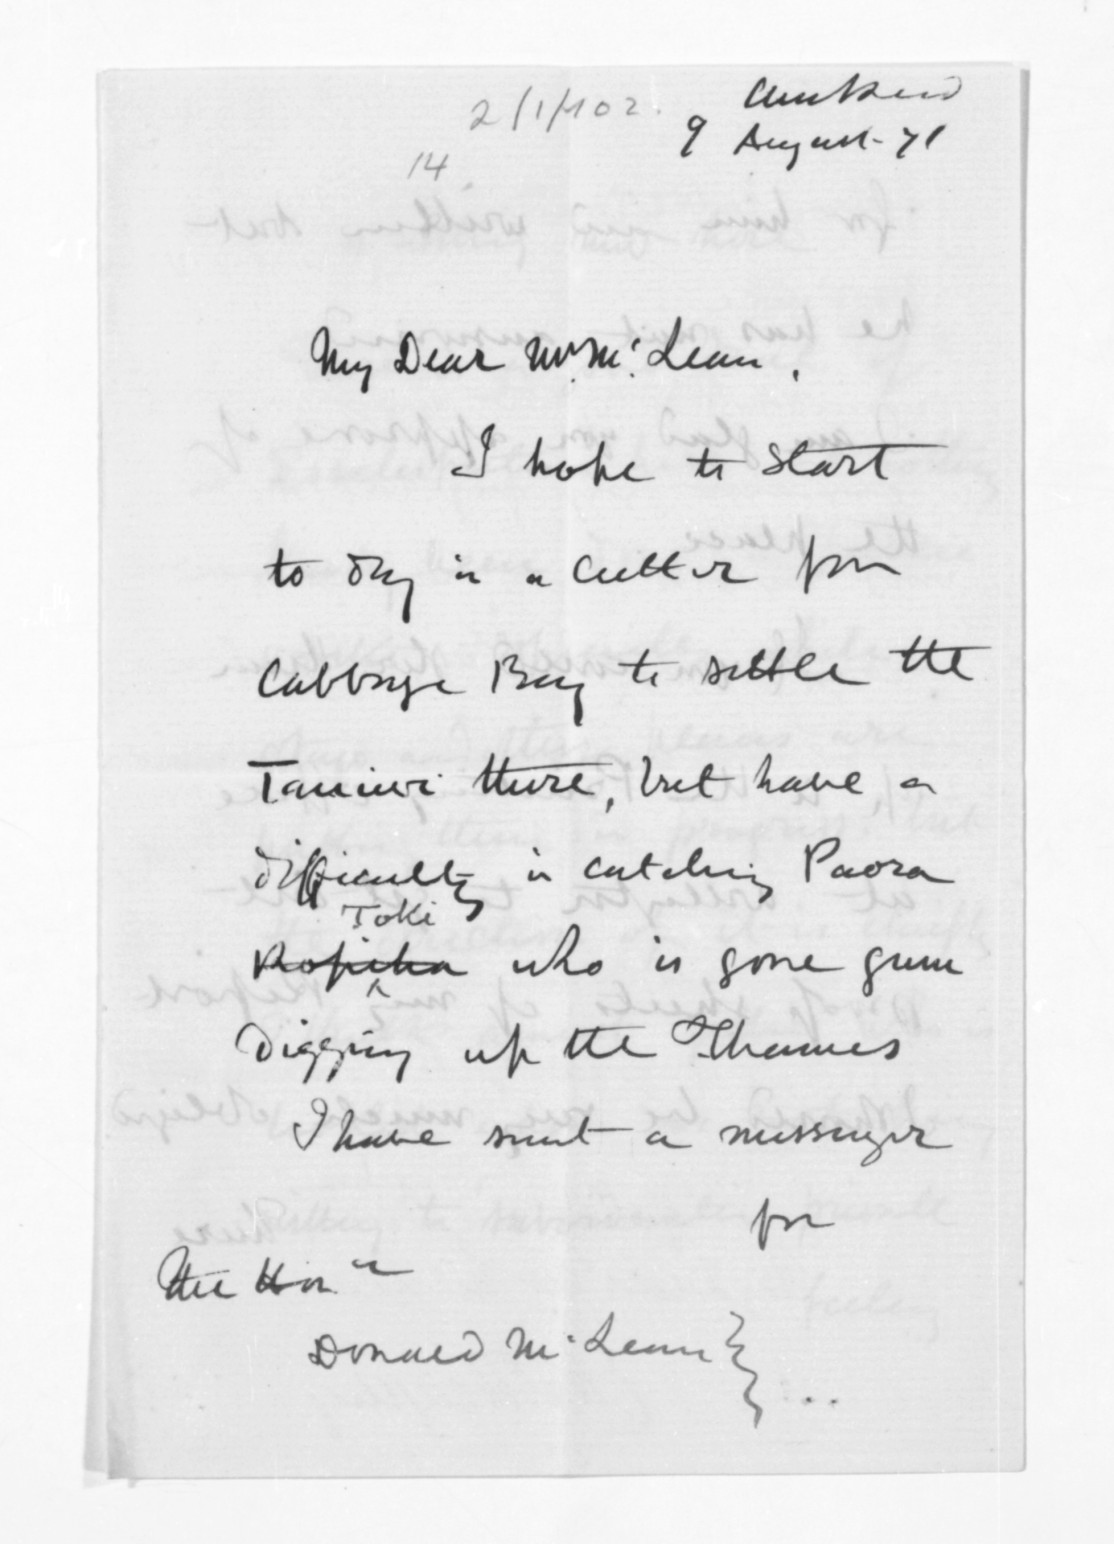 2/1/102.
Auckland
9 August - 71
14
My Dear Mr. McLean,
I hope to start
to day in a Cutter for
Cabbage Bay to settle the
Taniwi there, but have a
difficulty in catching Paora
Toki
Ropiha who is gone gum
digging up the Thames
I have sent a messenger
for
The Hon
Donald McLean